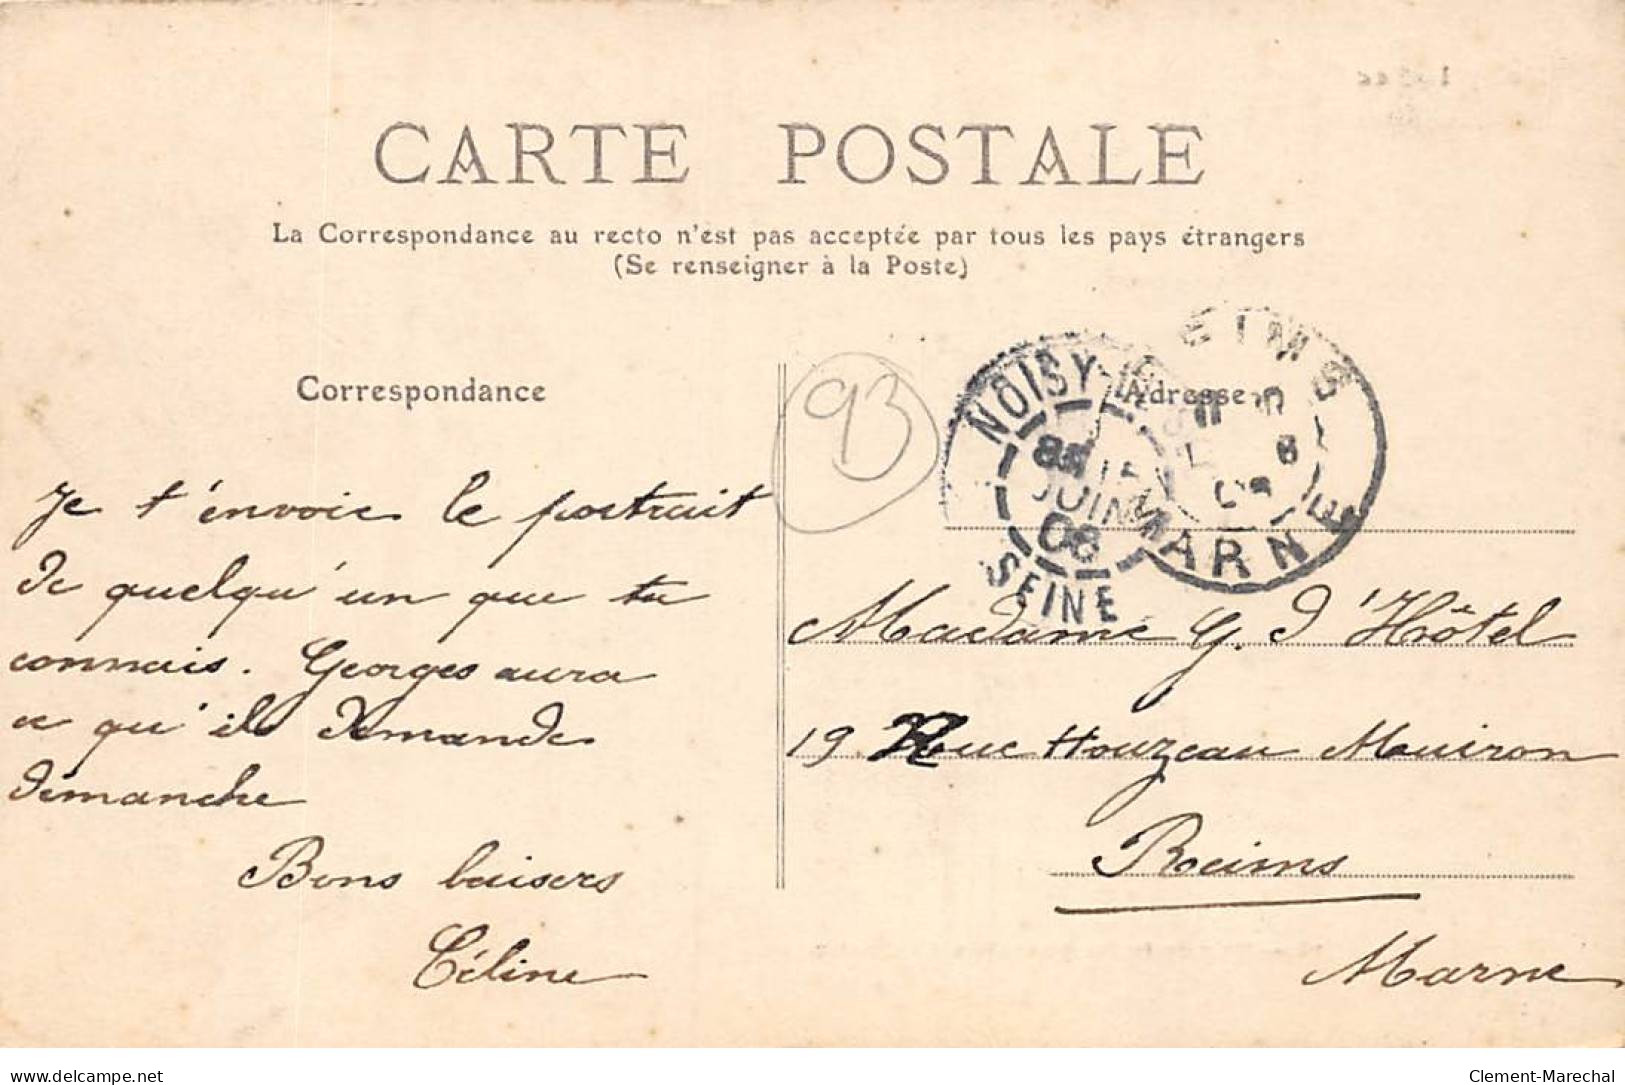 CARTE POSTALE
La Correspondance au recto n'est pas acceptée par tous les pays étrangers
(Se renseigner à la Poste)
Correspondance
Je t'envoie le portrait
de quelqu'un que tu
connais. Georges aura
ce qu'il demande
dimanche
Bons baisers
Céline
93
NOISY
JUIN
06
SEINE
EIMS
MARNE
Adresse
Madame G. d'Hôtel
19 Rue Houzeau Muiron
Reims
Marne
delcampe.net
Clement-Marechal